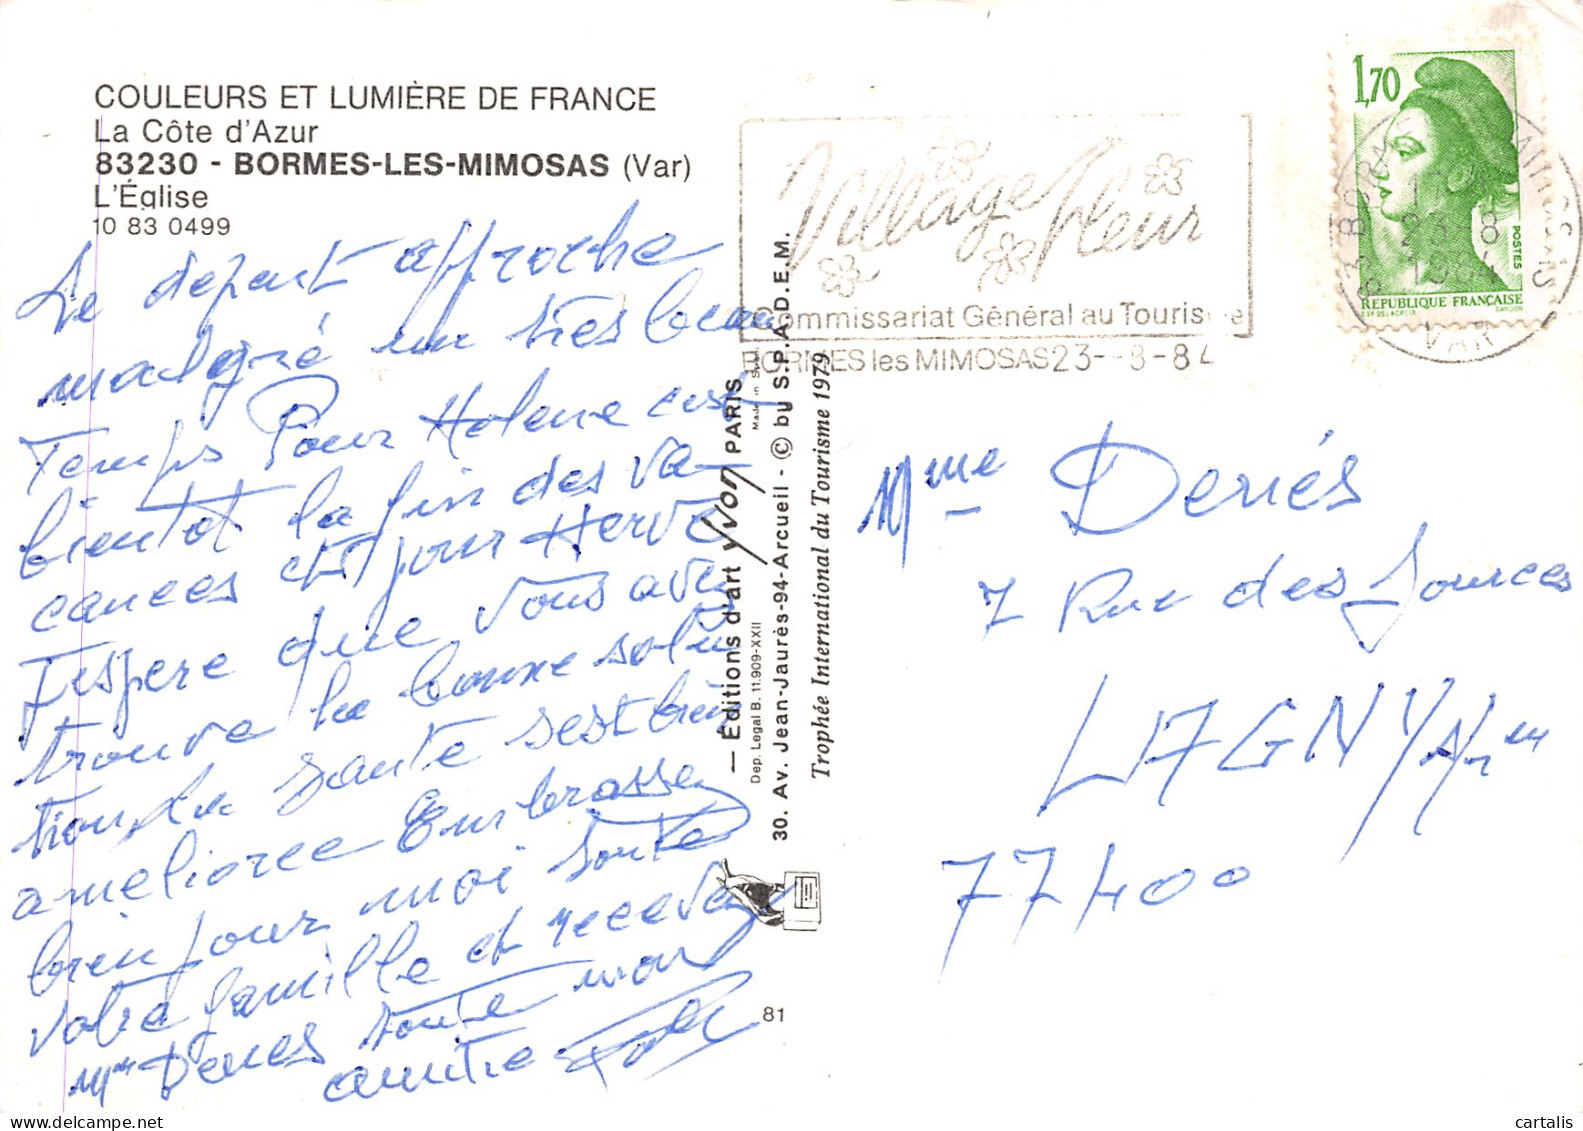 COULEURS ET LUMIÈRE DE FRANCE
La Côte d'Azur
83230 - BORMES-LES-MIMOSAS (Var)
L'Église
10 83 0499
Le depart approche
malgré un tres beau
Temps Pour Helene cest
bientot la fin des va-
cances et pour Hervé
Jespere que vous avez
trouve la bonne solu
tion la sante sest bien
amelioree Embrassez
bien pour moi toute
votre famille et recevez
Mme Denés toute mon
amitie
Village Fleuri
Commissariat Général au Tourisme
BORMES les MIMOSAS 23--8-84
1,70
POSTES
REPUBLIQUE FRANÇAISE
GANDON
83 BORMES LES MIMOSAS
23 8
1984
VAR
— Éditions d'art Yvon PARIS
Made in
Dep. Legal B. 11.909-XXII
30. Av. Jean-Jaurès-94-Arcueil - © by S.P.A.D.E.M.
Trophée International du Tourisme 1979
81
Mme Denés
7 Rue des Sources
LAGNY
77400
cartalis